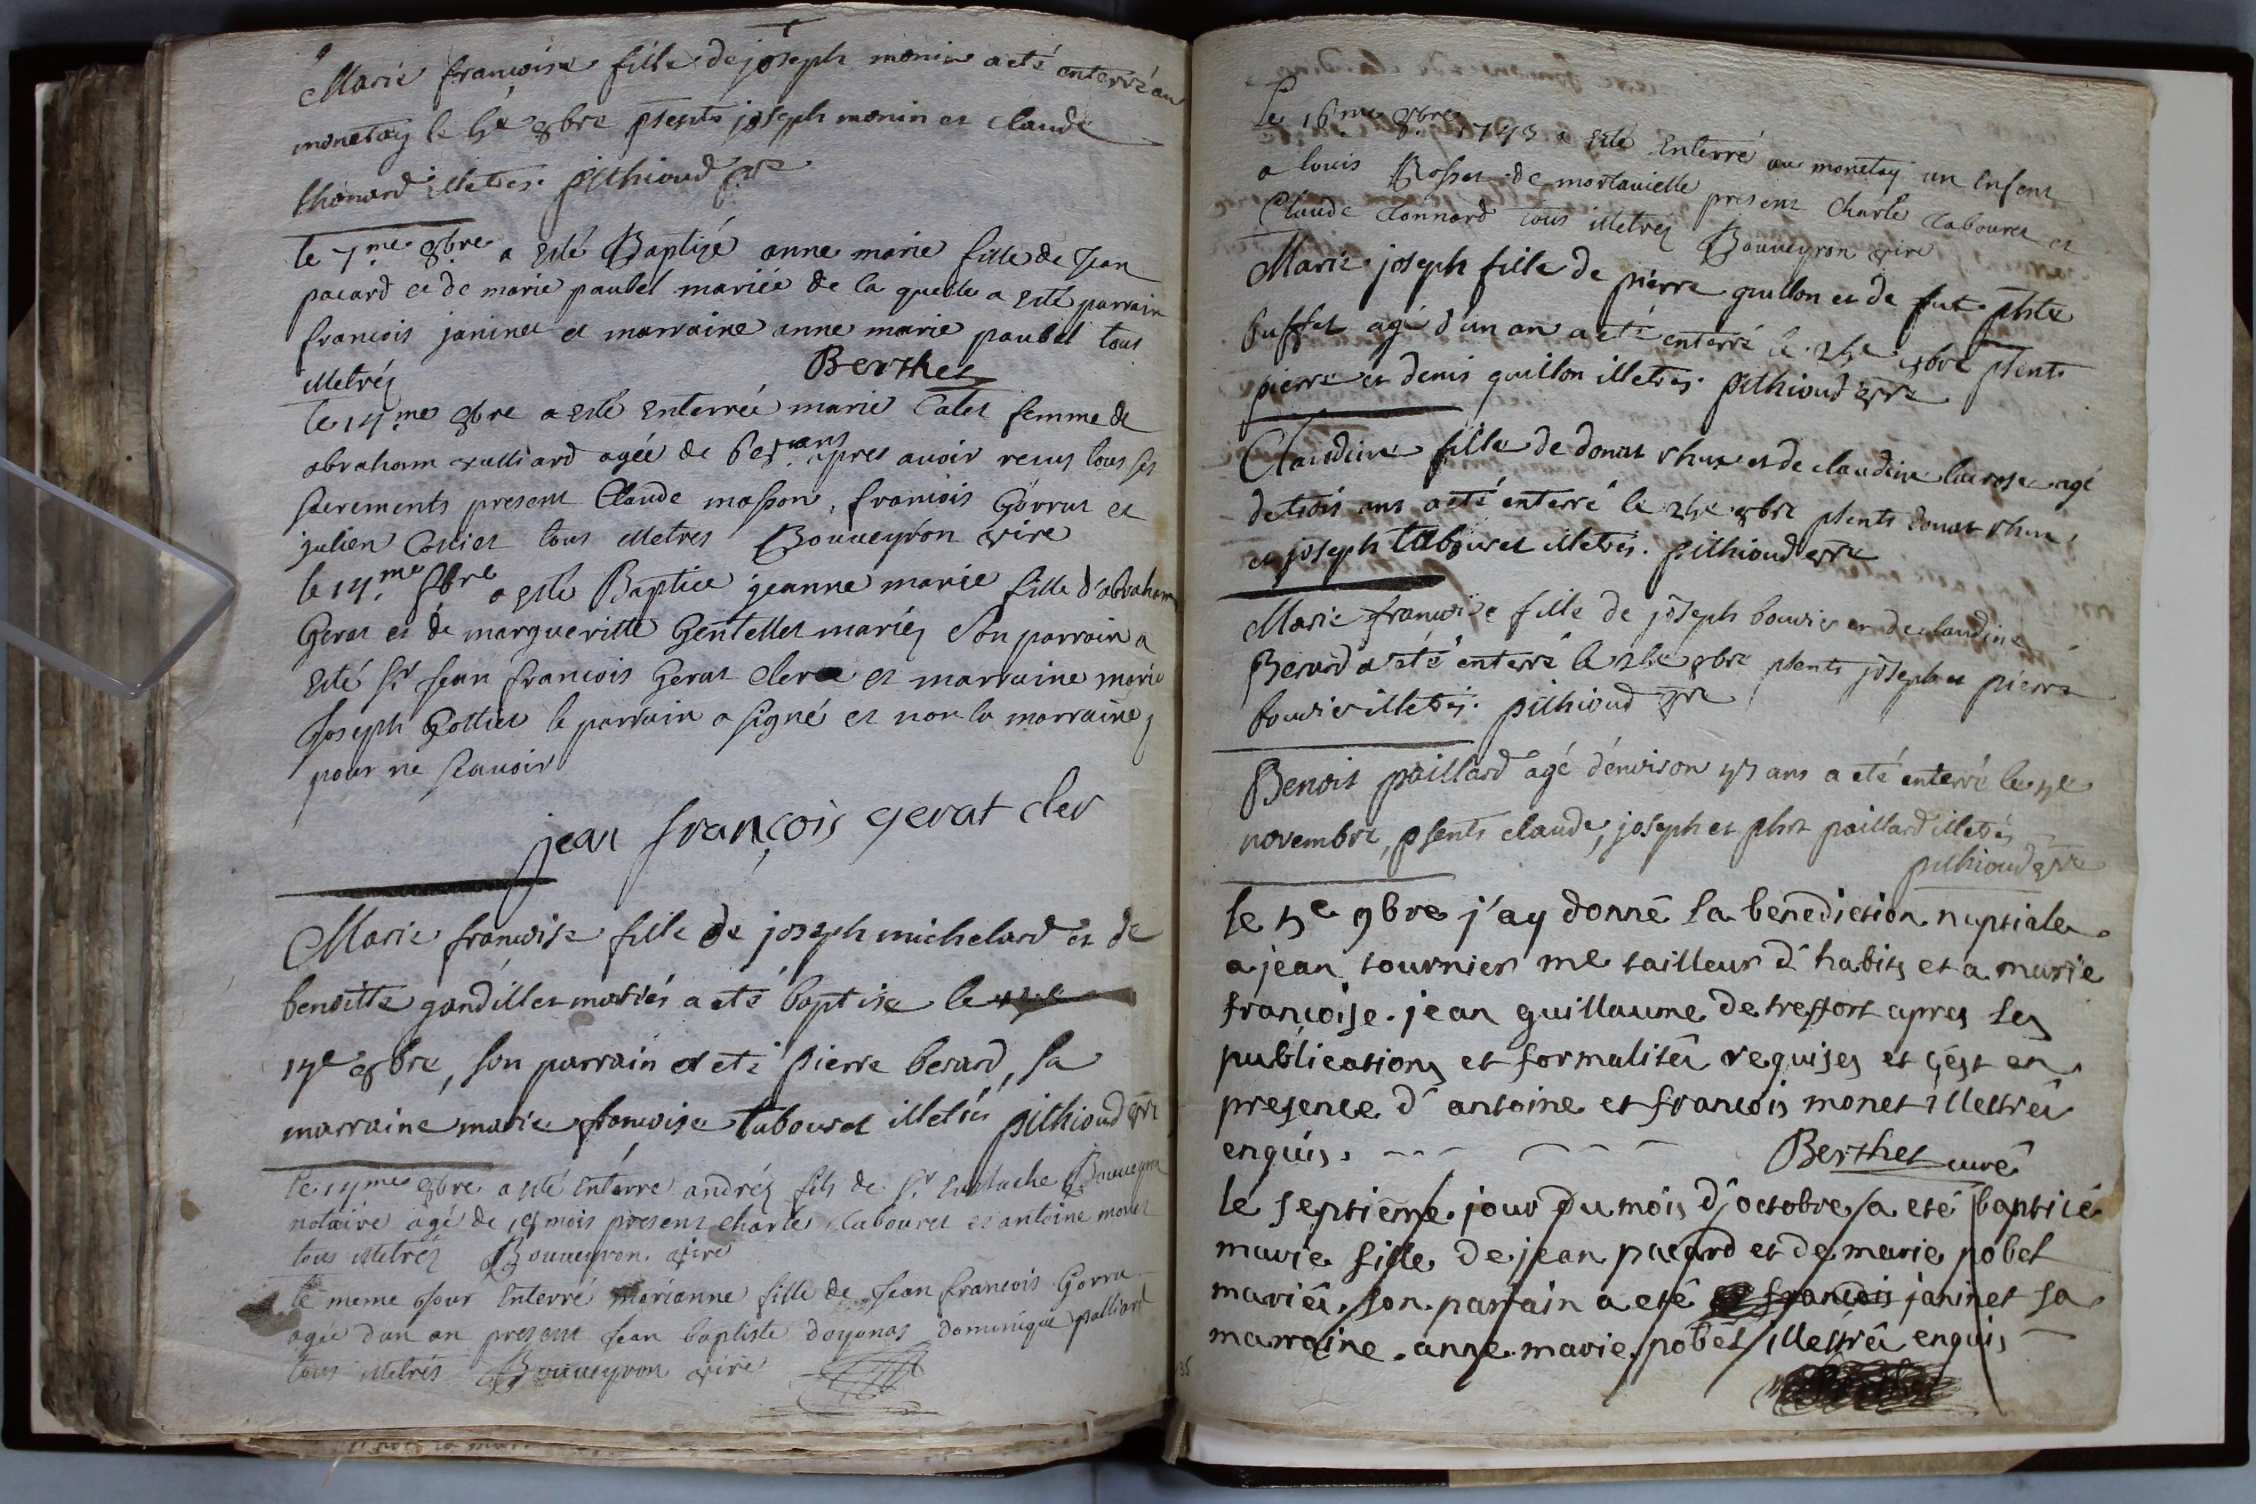 Marie françoise fille de joseph monin a eté enterré au
monetay le 5e 8bre psents joseph monin et claude
thonard illetrés. pithioud vre
le 7.me 8bre a esté Baptizé anne marie fille de Jean
pacard et de marie paubel mariée de la quelle a esté parrain
francois janinet et marraine anne marie paubel tous
illetréz Berthet
le 14.me 8bre a esté enterrée marie Catet femme de
abraham vulliard agée de ans apres avoir recus tous ses
sacrements present Claude masson, francois Gorrat et
julien Cottier tous illetres Bouueyron vire
le 14.me 8bre a esté Baptiee jeanne marie fille d'abraham
Gerat et de margueritte Gentellet mariéz Son parrain a
esté Sr Jean francois Gerat clerc et marraine marie
Joseph Gottiet le parrain a signé et non la marraine
pour ne scauoir
jean françois gerat cler
Marie françoise fille de joseph michelard et de
benoitte gandillet mariés a eté baptise le
14e 8bre, son parrain a eté pierre berard, sa
marraine marie françoise tabouret illetrés pithioud vre
le 14me 8bre a esté enterre andréz fils de Sr Eustache Bouueyron
notaire agé de mois present charle tabouret et antoine monet
tous illetréz Bouueyron vire
le meme jour enterré marianne fille de Jean francois Gorra
agée d'un an present Jean baptiste doyonas dominique palliard
tous illetrés Bouueyron vire
Le 16me 8bre 1743 a esté enterré au monetay un enfent
a louis Rosset de mortauielle present charle tabouret et
Claude tonnard tous illetréz Bouueyron vire
Marie joseph fille de pierre guillon et de fut phte
buffet agé d'un an a eté enterré le 24e 8bre psents
pierre et denis guillon illetrés. pithioud vre
Claudine fille de donat rhux et de claudine larose agé
de trois ans a eté enterré le 24e 8bre psents donat rhux
et joseph tabouret illetrés. pithioud vre
Marie françoise fille de joseph bouvier et de claudine
Berard a eté enterré le 24e 8bre psents joseph et pierre
bouvier illetrés. pithioud vre
Benoit paillard agé d'environ 45 ans a eté enterré le 4e
novembre, psents claude, joseph et phrt paillard illetrés
pithioud vre
le 5e 9bre j'ay donné la benediction nuptiale
a jean tournier me tailleur d'habits et a marie
françoise jean guillaume de treffort apres les
publications et formalités requises et c'est en
presence d'antoine et francois monet illettrés
enquis. Berthet curé
le septieme jour du mois d'octobre a eté baptisé
marie fille de jean pacard et de marie pobel
mariés, son parrain a eté francois janinet sa
marraine anne marie pobel illettrés enquis